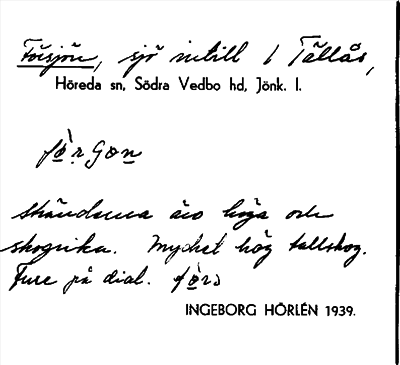 Försjön, sjö intill 1 Tällås,
Höreda sn, Södra Vedbo hd, Jönk. l.
stränderna äro höga och
skogrika. Mycket hög tallskog.
Fure på dial.
INGEBORG HÖRLÉN 1939.